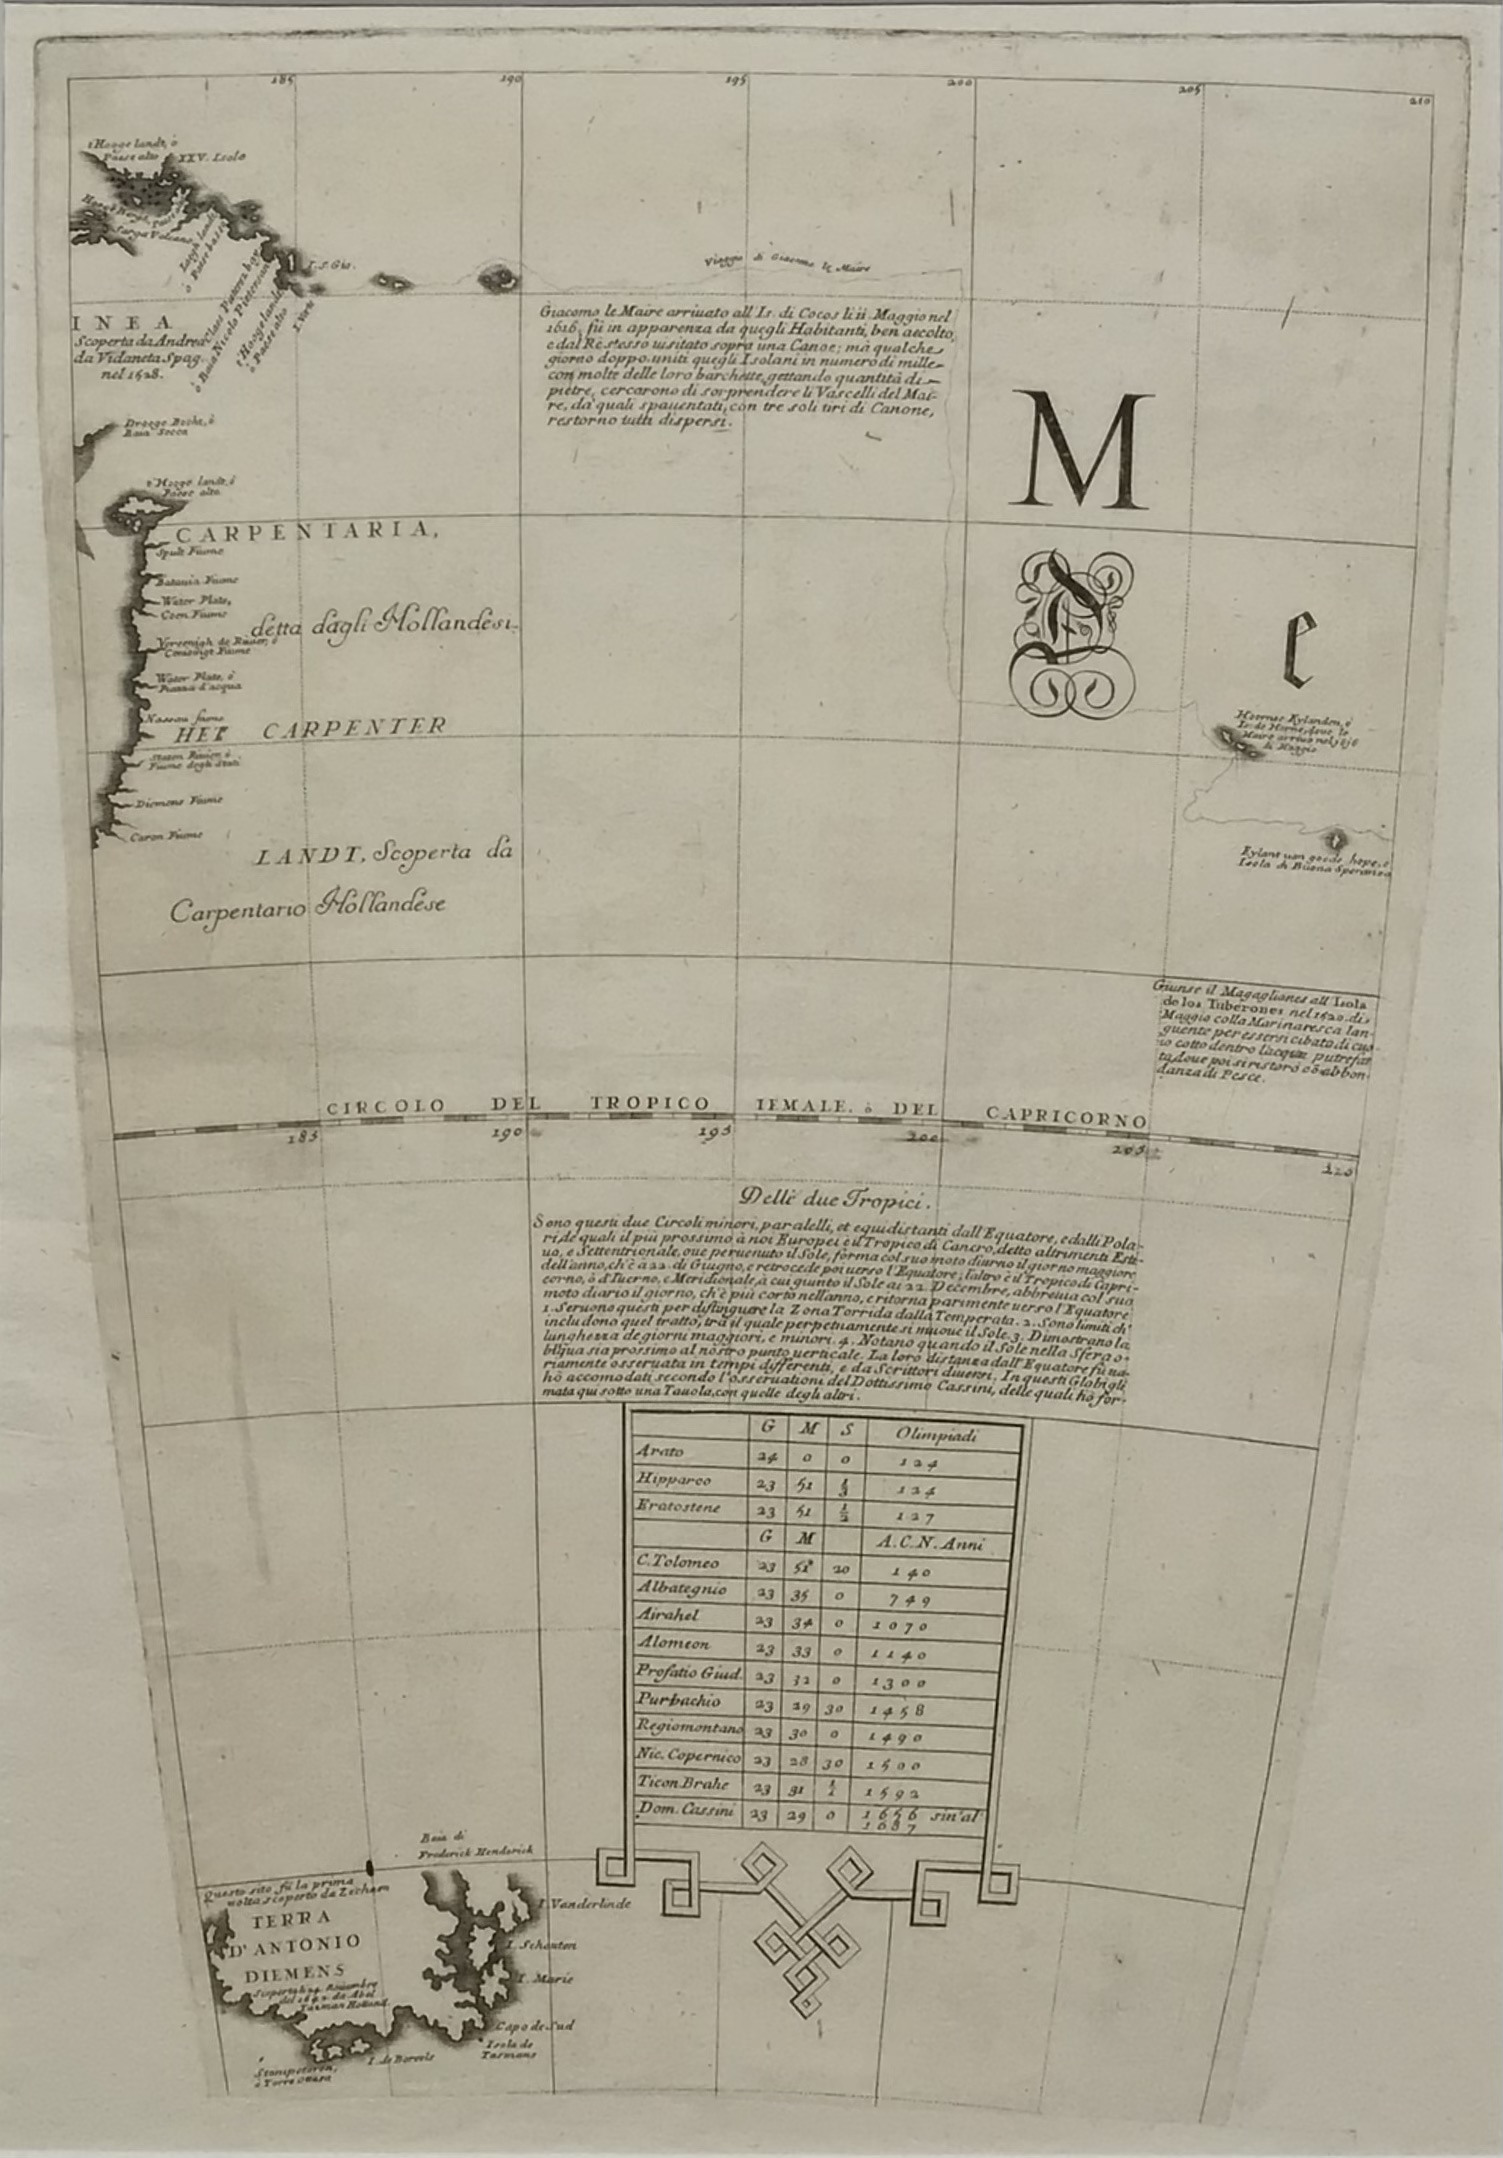 185 190 195 200 205 210
t'Hooge landt, ò
Paese alto
XXV. Isole
I.S. Gio.
Viaggio di Giacomo le Maire
INEA
Scoperta da Andrea
da Vidaneta Spag.
nel 1528.
Giacomo le Maire arriuato all'Is. di Cocos li ii. Maggio nel
1616, fù in apparenza da quegli Habitanti, ben accolto,
e dal Rè stesso uisitato sopra una Canoe; mà qualche
giorno doppo, uniti quegli Isolani in numero di mille
con molte delle loro barchette, gettando quantità di
pietre, cercarono di sorprendere li Vascelli del Mai-
re, da quali spauentati, con tre soli tiri di Canone,
restorno tutti dispersi.
M
Drooge Bocht, ò
Baia Secca
t'Hooge landt, ò
Paese alto
CARPENTARIA,
Spult Fiume
Batauia Fiume
Water Plats,
Coen Fiume
detta dagli Hollandesi
Vereenigh de Riuier, ò
Fiume
Water Plats, ò
Piazza d'acqua
e
Nassau fiume
HET CARPENTER
Hoornse Eylanden, ò
Is. de Horne, doue le
Maire arriuò nel 1616
di Maggio
Staten Riuier, ò
Fiume degli Stati
Diemens Fiume
Caron Fiume
LANDT, Scoperta da
Carpentario Hollandese
Eylant van goede hope, ò
Isola di Buona Speranza
Giunse il Magaglianes all'Isola
de los Tuberones nel 1520. di
Maggio colla Marinaresca lan-
guente per essersi cibata di cuo-
io cotto dentro l'acqua putrefat
ta, doue poi si ristorò cō abbon-
danza di Pesce.
CIRCOLO DEL TROPICO IEMALE. ò DEL CAPRICORNO
185 190 195 200 205 210
Delli due Tropici.
Sono questi due Circoli minori, paralelli, et equidistanti dall'Equatore, e dalli Pola-
ri, de quali il più prossimo à noi Europei è il Tropico di Cancro, detto altrimenti Esti-
uo, e Settentrionale, oue peruenuto il Sole, forma col suo moto diurno il giorno maggiore
dell'anno, ch'è à 22. di Giugno, e retrocede poi uerso l'Equatore; l'altro è il Tropico di Capri-
corno, ò d'Iuerno, e Meridionale, à cui giunto il Sole ai 22. Decembre, abbreuia col suo
moto diario il giorno, ch'è più corto nell'anno, e ritorna parimente uerso l'Equatore
1. Seruono questi per distinguere la Zona Torrida dalla Temperata. 2. Sono limiti ch'
includono quel tratto, trà il quale perpetuamente si muoue il Sole. 3. Dimostrano la
lunghezza de giorni maggiori, e minori. 4. Notano quando il Sole nella Sfera o-
bliqua sia prossimo al nostro punto uerticale. La loro distanza dall'Equatore fù ua-
riamente osseruata in tempi differenti, e da Scrittori diuersi. In questi Globi gli
hò accomodati secondo l'osseruationi del Dottissimo Cassini, delle quali hò for-
mata qui sotto una Tauola, con quelle degli altri.
G M S Olimpiadi
Arato 24 0 0 124
Hipparco 23 51 1/3 124
Eratostene 23 51 1/2 127
G M A.C.N. Anni
C. Tolomeo 23 51 20 140
Albategnio 23 35 0 749
Airahel 23 34 0 1070
Alomeon 23 33 0 1140
Profatio Giud. 23 32 0 1300
Purbachio 23 29 30 1458
Regiomontano 23 30 0 1490
Nic. Copernico 23 28 30 1500
Ticon. Brahe 23 31 1/2 1592
Dom. Cassini 23 29 0 1656 sin'al
1687
Baia di
Frederick Henderick
Questo sito fù la prima
uolta scoperto da Zeehaen
TERRA
D'ANTONIO
DIEMENS
Scoperta li 24. Nouembre
del 1642. da Abel
Tasman Holland.
I. Vanderlinde
I. Schouten
I. Marie
Capo de Sud
Isola de
Tasmans
I. de Boreels